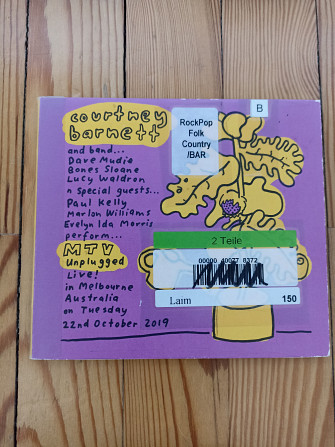 courtney
barnett
and band...
Dave Mudie
Bones Sloane
Lucy Waldron
n special guests...
Paul Kelly
Marlon Williams
Evelyn Ida Morris
perform...
MTV
Unplugged
Live!
in Melbourne
Australia
on Tuesday
22nd October 2019
B
RockPop
Folk
Country
/BAR
2 Teile
Laim
150